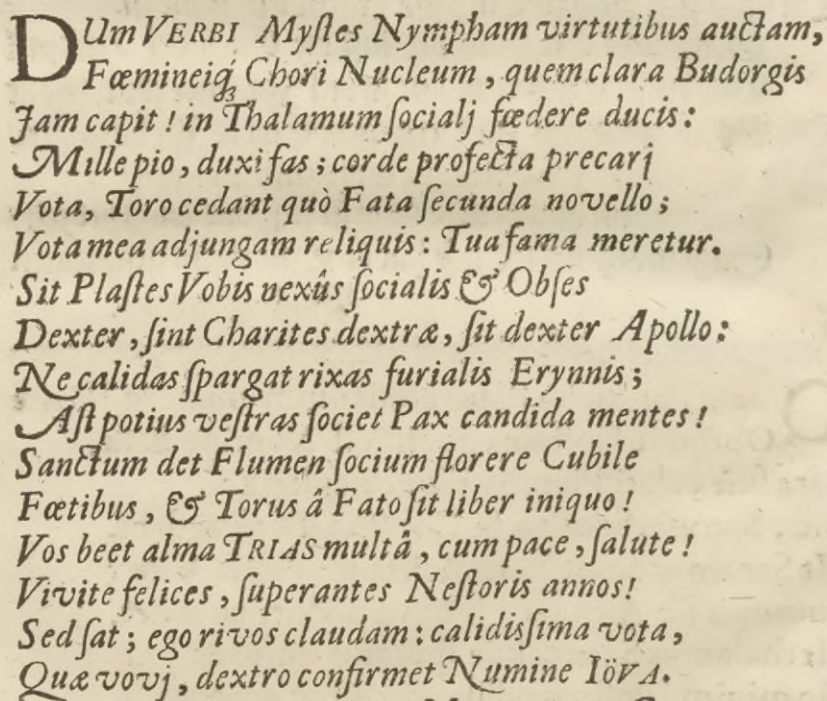 DUm VERBI Myſtes Nympham virtutibus auctam,
Fœmineiq́; Chori Nucleum, quem clara Budorgis
Jam capit! in Thalamum ſocialj fœdere ducis:
Mille pio, duxi fas; corde profecta precarj
Vota, Toro cedant quò Fata ſecunda novello;
Vota mea adjungam reliquis: Tua fama meretur.
Sit Plaſtes Vobis nexûs ſocialis & Obſes
Dexter, ſint Charites dextræ, ſit dexter Apollo:
Ne calidas ſpargat rixas furialis Erynnis;
Aſt potius veſtras ſociet Pax candida mentes!
Sanctum det Flumen ſocium florere Cubile
Fœtibus, & Torus â Fato ſit liber iniquo!
Vos beet alma TRIAS multâ, cum pace, ſalute!
Vivite felices, ſuperantes Neſtoris annos!
Sed ſat; ego rivos claudam: calidisſima vota,
Quæ vovj, dextro confirmet Numine IöVA.